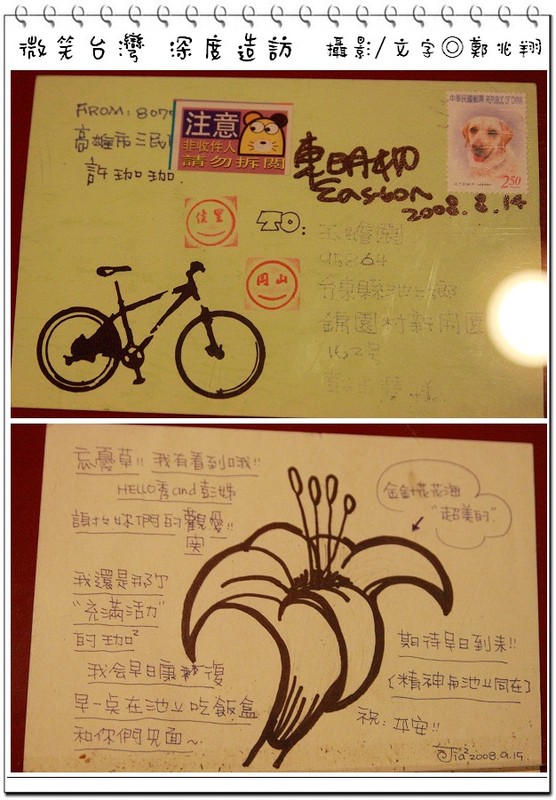 微笑台灣 深度造訪 攝影/文字◎鄭兆翔
FROM: 807
高雄市三民
許珈珈.
注意
非收件人
請勿拆閱
Easton
2008.8.14
中華民國郵票 REPUBLIC OF CHINA
250
佳里
岡山
TO:
95864
台東縣池上鄉
錦園村新開園
162號
忘憂草!! 我有看到哦!!
HELLO 秀and彭姊
謝
你們的
我還是那个
"充滿活力"
的珈²
我会早日康復
早一点在池上吃飯盒
和你們見面~
金針花花海
"超美的"
期待早日到來!!
(精神與池上同在)
祝:平安!!
2008.9.15